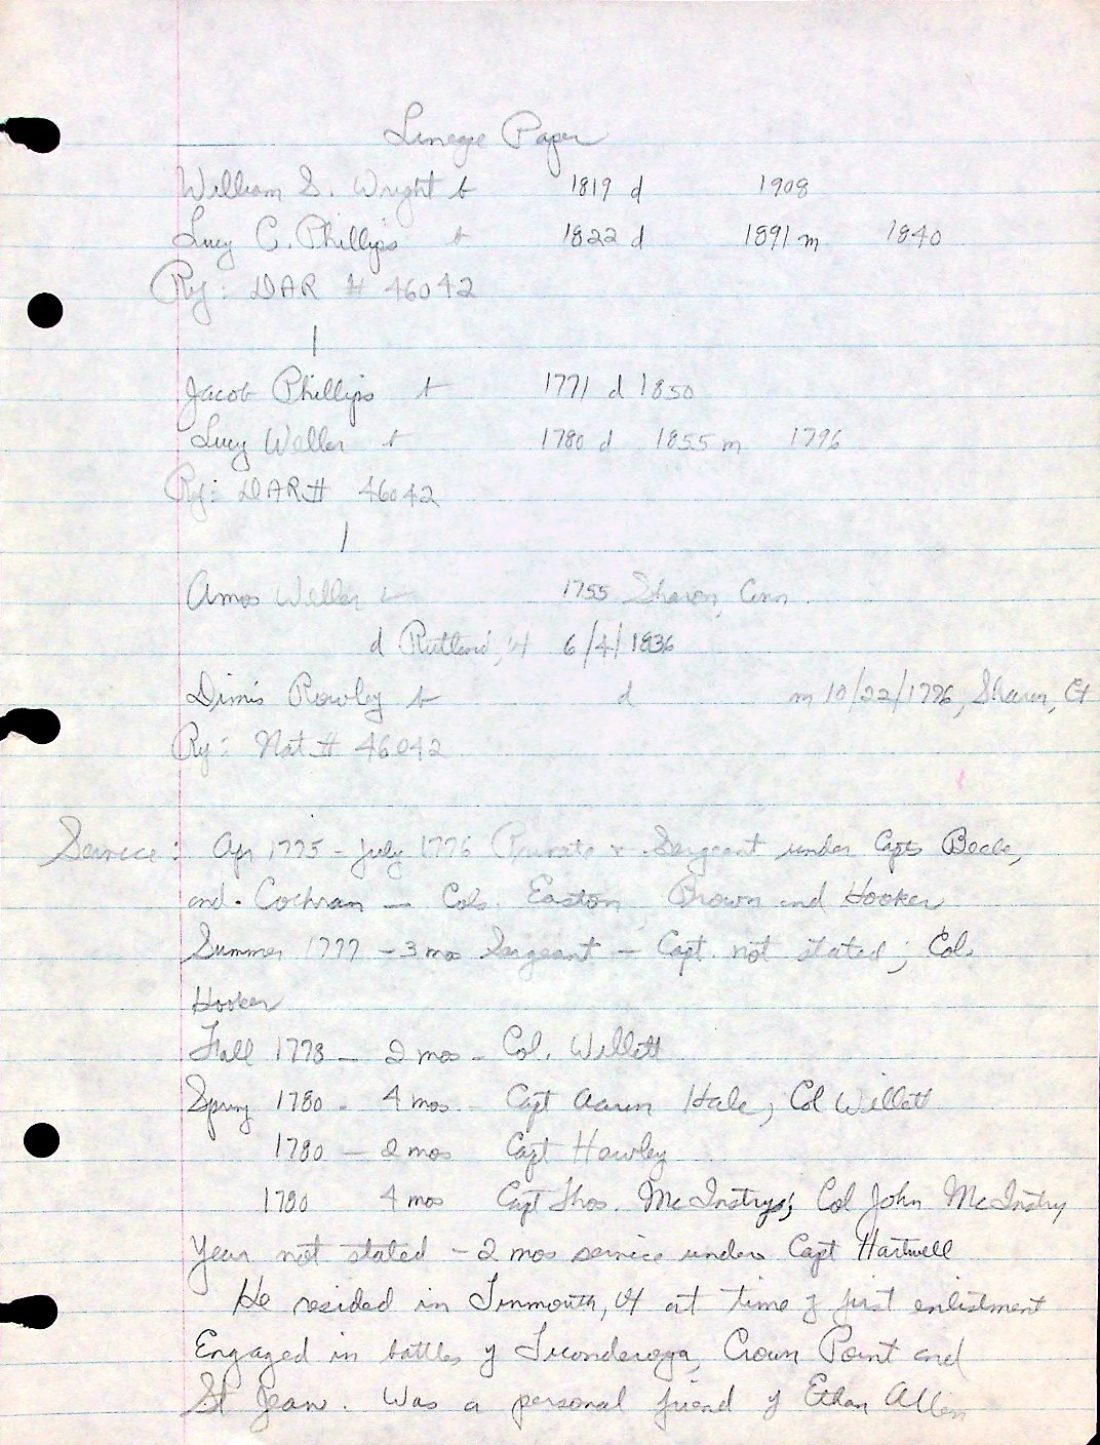 Lineage Paper
William S. Wright b 1819 d 1908
Lucy C. Phillips b 1822 d 1891 m 1840
Ref: DAR # 46042
Jacob Phillips b 1771 d 1850
Lucy Weller b 1780 d 1855 m 1796
Ref: DAR# 46042
Amos Weller b 1755 Sharon, Conn.
d Rutland, Vt 6/4/1836
Dimis Rowley b d m 10/22/1776, Sharon, Ct
Ref: Nat # 46042
Service: Apr 1775 - July 1776 Private & Sergeant under Capts Beebe,
and Cochran — Cols. Easton Brown and Hooker
Summer 1777 - 3 mos Sergeant — Capt. not stated; Col.
Hooker
Fall 1778 - 2 mos - Col. Willett
Spring 1780 - 4 mos. - Capt Aaron Hale; Col Willett
1780 - 2 mos Capt Hawley
1780 4 mos Capt Thos. McInstry; Col John McInstry
Year not stated - 2 mos service under Capt Hartwell
He resided in Tinmouth, Vt at time of first enlistment
Engaged in battles of Ticonderoga, Crown Point and
St Jean. Was a personal friend of Ethan Allen